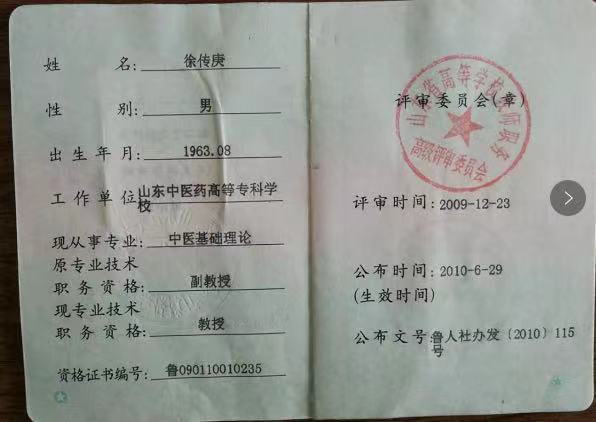 姓名:徐传庚
性别:男
出生年月:1963.08
工作单位山东中医药高等专科学
校
现从事专业:中医基础理论
原专业技术
职务资格:副教授
现专业技术
职务资格:教授
资格证书编号:鲁090110010235
山东省高等学校教师职务
高级评审委员会
评审委员会(章)
评审时间:2009-12-23
公布时间:2010-6-29
(生效时间)
公布文号:鲁人社办发〔2010〕115
号